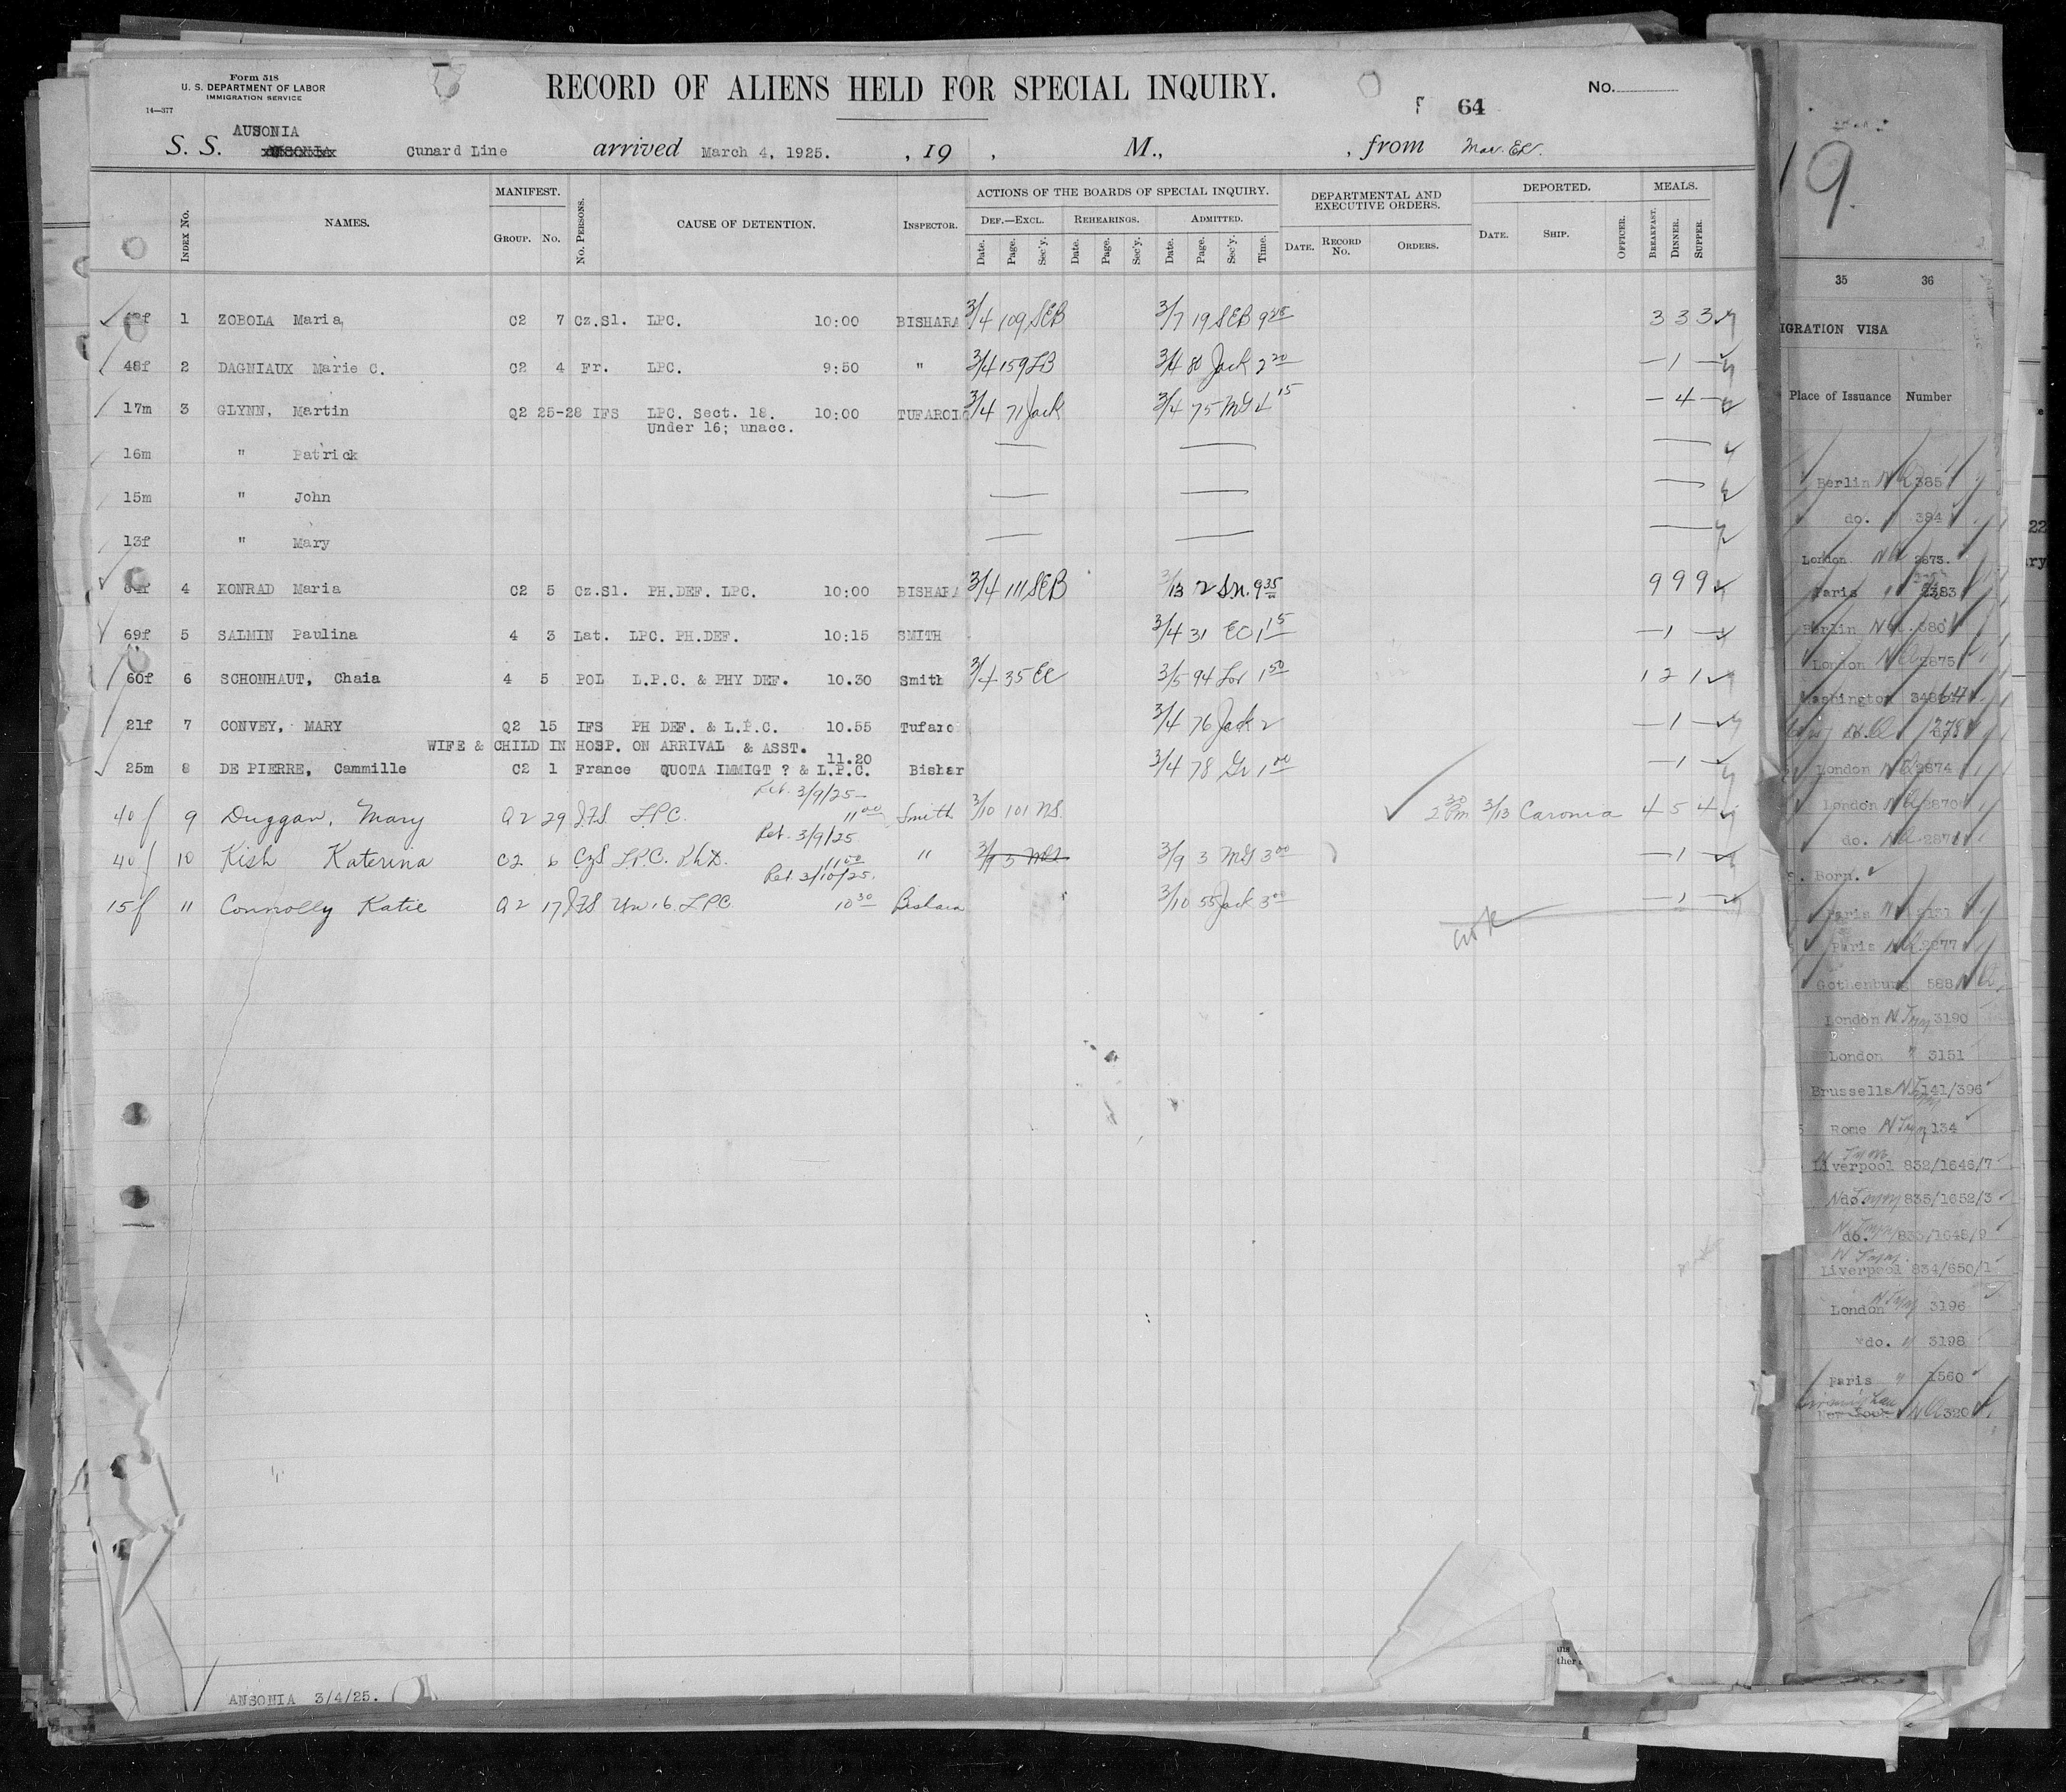 Form 518
U. S. DEPARTMENT OF LABOR
IMMIGRATION SERVICE
14—377
RECORD OF ALIENS HELD FOR SPECIAL INQUIRY.
No.
64
AUSONIA
S. S. Cunard Line arrived March 4, 1925. , 19 , M., , from
Index No. NAMES. MANIFEST. Group. No. No. Persons. CAUSE OF DETENTION. Inspector. ACTIONS OF THE BOARDS OF SPECIAL INQUIRY. DEPARTMENTAL AND EXECUTIVE ORDERS. DEPORTED. MEALS.
Def.—Excl. Rehearings. Admitted.
Date. Page. Sec'y. Date. Page. Sec'y. Date. Page. Sec'y. Time. Date. Record No. Orders. Date. Ship. Officer. Breakfast. Dinner. Supper.
1 ZOBOLA Maria C2 7 Cz.Sl. LPC. 10:00 BISHARA 3/4 109 SEB 3/7 19 SEB 3 3 3
48f 2 DAGNIAUX Marie C. C2 4 Fr. LPC. 9:50 " 3/4 159 LB 3/4 80 Jack 2 20 — 1 —
17m 3 GLYNN, Martin Q2 25-28 IFS LPC. Sect. 18. 10:00 3/4 71 Jack 3/4 75 — 4 —
Under 16; unacc.
16m " Patrick
15m " John
13f " Mary
4 KONRAD Maria C2 5 Cz.Sl. PH.DEF. LPC. 10:00 BISHARA 3/4 111 SEB 3/13 2 9 35 9 9 9
69f 5 SALMIN Paulina 4 3 Lat. LPC. PH.DEF. 10:15 SMITH 3/4 31 EC 1 15 — 1 —
60f 6 SCHONHAUT, Chaia 4 5 POL L.P.C. & PHY DEF. 10.30 Smith 3/4 35 EC 3/5 94 1 50 1 2 1
21f 7 CONVEY, MARY Q2 15 IFS PH DEF. & L.P.C. 10.55 Tufaro 3/4 76 Jack 2 — 1 —
WIFE & CHILD IN HOSP. ON ARRIVAL & ASST.
25m 8 DE PIERRE, Cammille C2 1 France QUOTA IMMIGT ? & L.P.C. 11.20 Bishar 3/4 78 Gr 1 00 — 1 —
Ret. 3/9/25
40f 9 Duggan, Mary Q2 29 IFS LPC. 11 00 Smith 3/10 101 NS. 2 30 Pm 3/13 Caronia 4 5 4
Ret. 3/9/25
40f 10 Kish Katerina C2 6 CzS L.P.C. Ph.D. 11 00 " 3/9 3 3/9 3 3 00 — 1 —
Ret. 3/10/25.
15f 11 Connolly Katie Q2 17 IFS Un 16. LPC. 10 30 Bishara 3/10 55 Jack 3 00 — 1 —
ANSONIA 3/4/25.
19.
35 36
IGRATION VISA
Place of Issuance Number
Berlin 385
do. 384
London 2873.
Paris
Berlin 380
London 2875
Washington
London 2874
London 2870
do. 2871
Born.
Paris
Paris 2277
Gothenburg 588
London 3190
London " 3151
Brussells 141/396
Rome 134
Liverpool 832/1646/7
do. 835/1652/3
do. 833/1648/9
Liverpool 834/650/1
London 3196
do. 3198
Paris " 1560
320